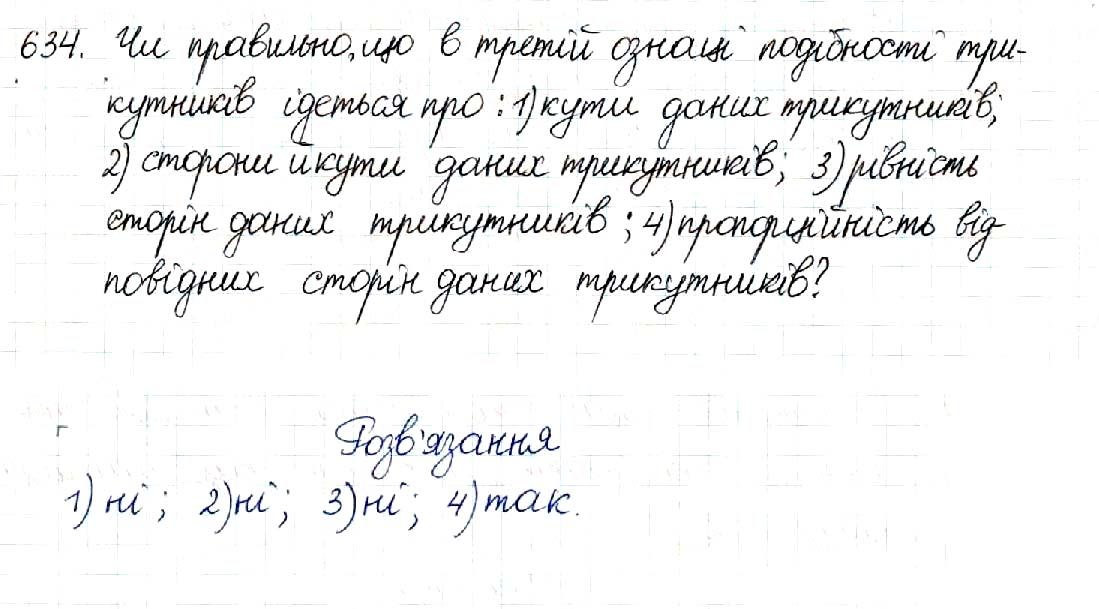 634. Чи правильно, що в третій ознаці подібності три-
кутників ідеться про: 1) кути даних трикутників;
2) сторони й кути даних трикутників; 3) рівність
сторін даних трикутників; 4) пропорційність від-
повідних сторін даних трикутників?
Розв'язання
1) ні; 2) ні; 3) ні; 4) так.